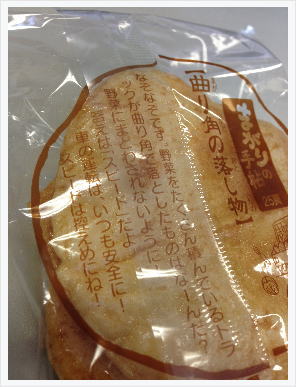 まがりの手帖
【曲り角の落し物】
なぞなぞです。野菜をたくさん積んでいるトラ
ックが曲り角で落としたものはなーんだ？
野菜にまどわされないように！
答えは「スピード」だよ。
車の運転は、いつも安全に！
スピードは控えめにね！